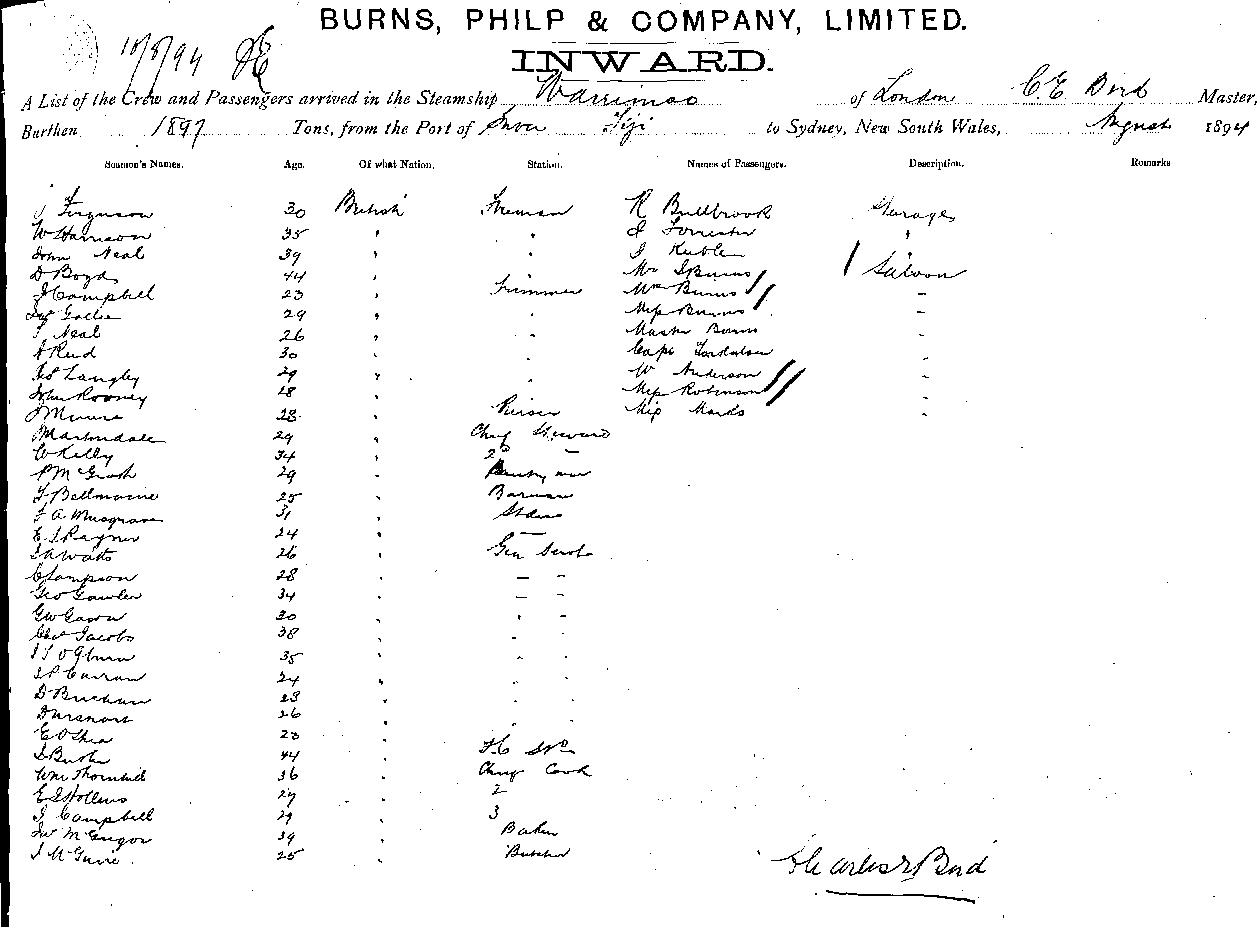 BURNS, PHILP & COMPANY, LIMITED.
18/8/94
INWARD.
A List of the Crew and Passengers arrived in the Steamship Warrimoo of London C E Bird Master,
Burthen 1897 Tons, from the Port of Suva Fiji to Sydney, New South Wales, August 1894
Seamen's Names. Age. Of what Nation. Station. Names of Passengers. Description. Remarks
J Ferguson 30 British Fireman R Bullbrook Steerage
W Harrison 35 " " J Forrester "
John Neal 39 " " J
D Boyd 44 " " Mr J Burns Saloon
J Campbell 23 " Trimmer Mrs Burns "
29 " " Miss Burns "
T Neal 26 " " Master Burns "
A Reid 30 " " Capt "
Geo Langley 29 " " W Anderson "
John Rooney 18 " " Miss Robinson "
J 28 " Purser Miss Marks "
Martindale 29 " Chief Steward
W Kelly 34 " 2d "
P McGrath 29 " Pantryman
F Bellmaine 25 " Barman
F A Musgrave 31 "
E J Rayner 24 " "
J A Watts 26 " Gen Servt
C Sampson 28 " " "
Geo Gawler 34 " " "
G W Gawn 30 " " "
Chas Jacobs 38 " " "
J T Ogburn 35 " " "
J P Curran 24 " " "
D Buchan 23 " " "
26 " " "
E O'Shea 23 " " "
J Butler 44 "
Wm Thornhill 36 " Chief Cook
E J Hollins 27 " 2
J Campbell 29 " 3
Jno McGregor 39 " Baker
J McGuire 25 " Butcher
Charles E Bird